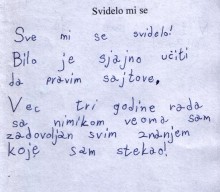 Svidelo mi se
Sve mi se svidelo!
Bilo je sjajno učiti
da pravim sajtove,
Vec tri godine rada
sa nimikom veoma sam
zadovoljan svim znanjem
koje sam stekao!